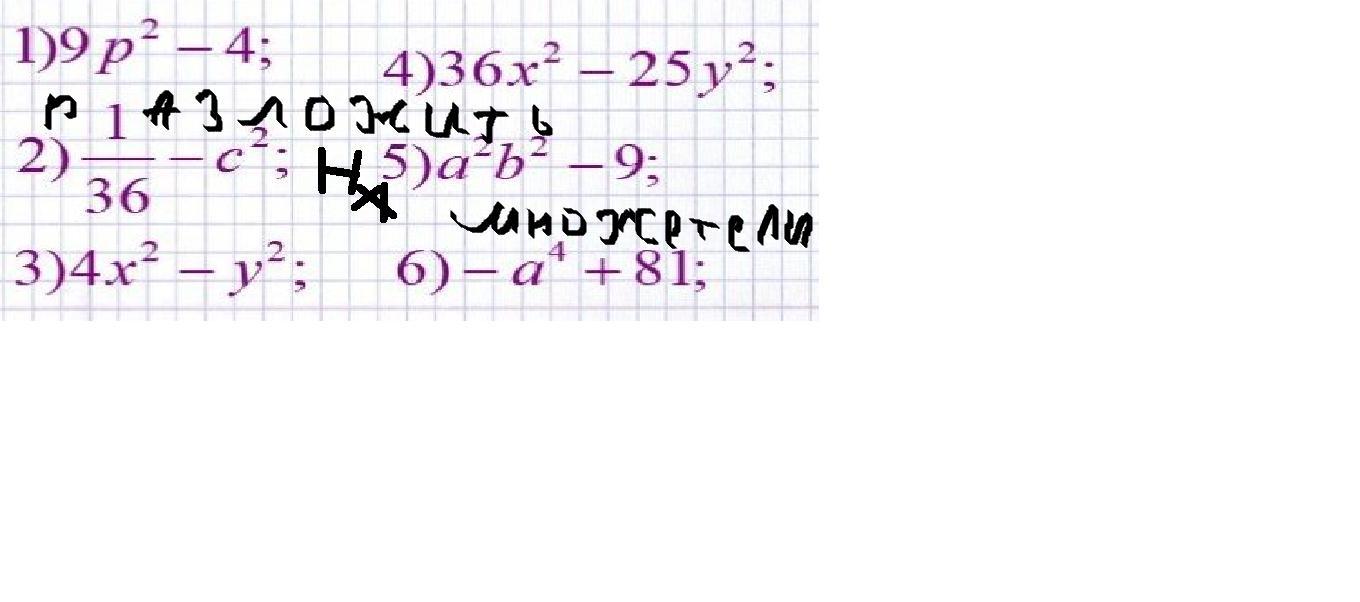 1)9p² − 4;
4)36x² − 25y²;
разложить
2) 1/36 − c²;
На
5)a²b² − 9;
множетели
3)4x² − y²;
6) − a⁴ + 81;